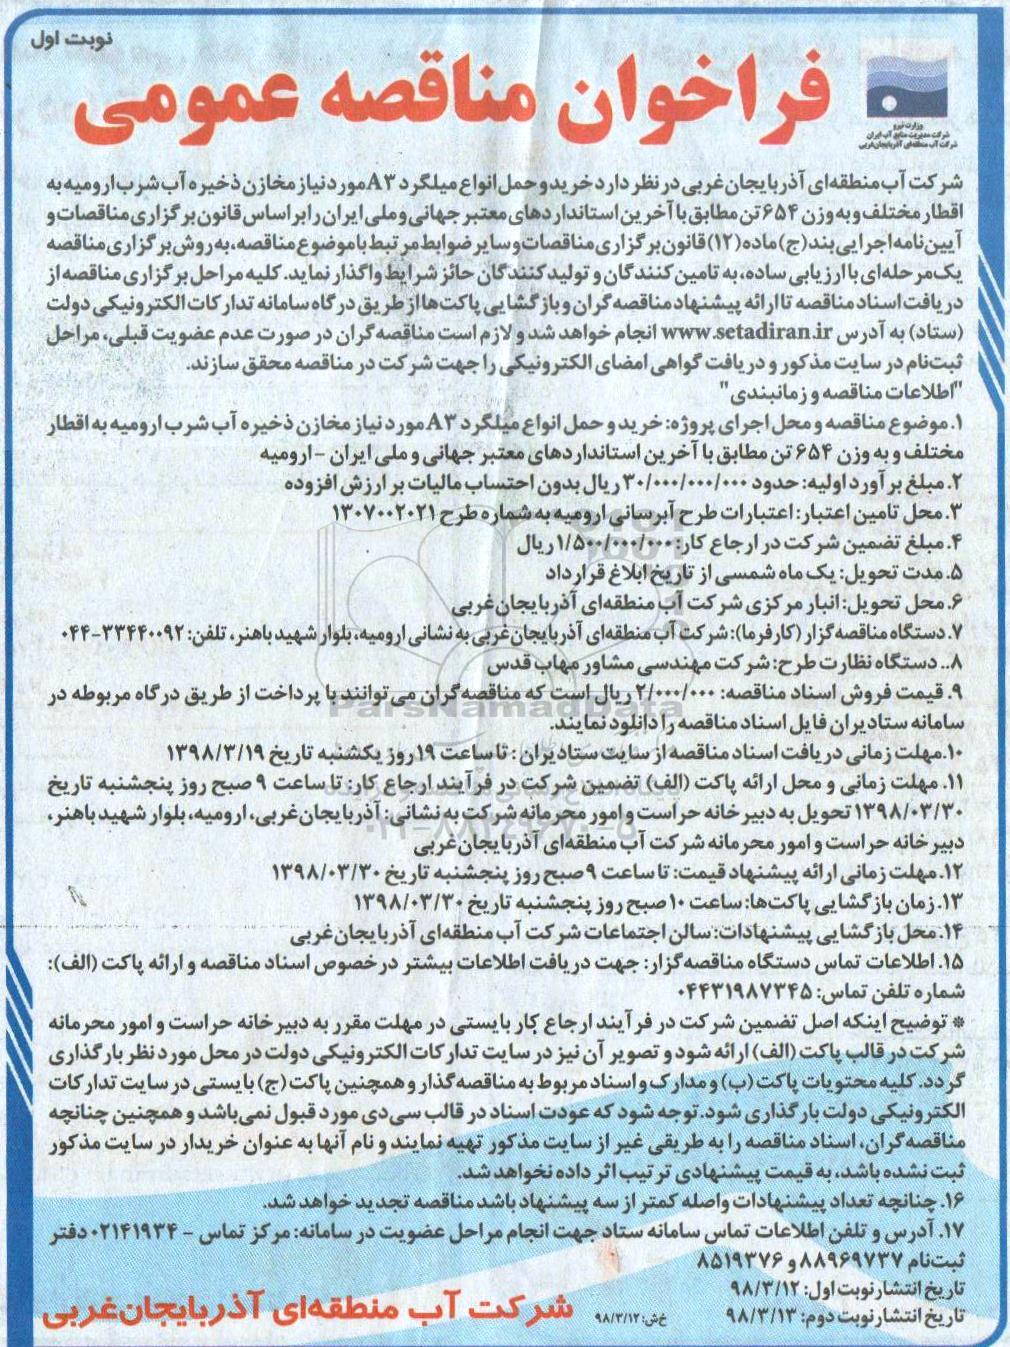 نوبت اول
فراخوان مناقصه عمومی
وزارت نیرو
شرکت مدیریت منابع آب ایران
شرکت آب منطقه‌ای آذربایجان‌غربی
شرکت آب منطقه‌ای آذربایجان‌غربی در نظر دارد خرید و حمل انواع میلگرد A۳ مورد نیاز مخازن ذخیره آب شرب ارومیه به
اقطار مختلف و به وزن ۶۵۴ تن مطابق با آخرین استانداردهای معتبر جهانی و ملی ایران را بر اساس قانون برگزاری مناقصات و
آیین‌نامه اجرایی بند (ج) ماده (۱۲) قانون برگزاری مناقصات و سایر ضوابط مرتبط با موضوع مناقصه، به روش برگزاری مناقصه
یک مرحله‌ای با ارزیابی ساده، به تامین کنندگان و تولید کنندگان حائز شرایط واگذار نماید. کلیه مراحل برگزاری مناقصه از
دریافت اسناد مناقصه تا ارائه پیشنهاد مناقصه گران و بازگشایی پاکت‌ها از طریق درگاه سامانه تدارکات الکترونیکی دولت
(ستاد) به آدرس www.setadiran.ir انجام خواهد شد و لازم است مناقصه گران در صورت عدم عضویت قبلی، مراحل
ثبت‌نام در سایت مذکور و دریافت گواهی امضای الکترونیکی را جهت شرکت در مناقصه محقق سازند.
"اطلاعات مناقصه و زمانبندی"
۱. موضوع مناقصه و محل اجرای پروژه: خرید و حمل انواع میلگرد A۳ مورد نیاز مخازن ذخیره آب شرب ارومیه به اقطار
مختلف و به وزن ۶۵۴ تن مطابق با آخرین استانداردهای معتبر جهانی و ملی ایران - ارومیه
۲. مبلغ برآورد اولیه: حدود ۳۰/۰۰۰/۰۰۰/۰۰۰ ریال بدون احتساب مالیات بر ارزش افزوده
۳. محل تامین اعتبار: اعتبارات طرح آبرسانی ارومیه به شماره طرح ۱۳۰۷۰۰۲۰۲۱
۴. مبلغ تضمین شرکت در ارجاع کار: ۱/۵۰۰/۰۰۰/۰۰۰ ریال
۵. مدت تحویل: یک ماه شمسی از تاریخ ابلاغ قرارداد
۶. محل تحویل: انبار مرکزی شرکت آب منطقه‌ای آذربایجان‌غربی
۷. دستگاه مناقصه‌گزار (کارفرما): شرکت آب منطقه‌ای آذربایجان‌غربی به نشانی ارومیه، بلوار شهید باهنر، تلفن: ۳۳۴۴۰۰۹۲-۰۴۴
۸.. دستگاه نظارت طرح: شرکت مهندسی مشاور مهاب قدس
۹. قیمت فروش اسناد مناقصه: ۲/۰۰۰/۰۰۰ ریال است که مناقصه‌گران می‌توانند با پرداخت از طریق درگاه مربوطه در
سامانه ستادیران فایل اسناد مناقصه را دانلود نمایند.
۱۰. مهلت زمانی دریافت اسناد مناقصه از سایت ستادیران : تا ساعت ۱۹ روز یکشنبه تاریخ ۱۳۹۸/۳/۱۹
۱۱. مهلت زمانی و محل ارائه پاکت (الف) تضمین شرکت در فرآیند ارجاع کار: تا ساعت ۹ صبح روز پنجشنبه تاریخ
۱۳۹۸/۰۳/۳۰ تحویل به دبیرخانه حراست و امور محرمانه شرکت به نشانی: آذربایجان‌غربی، ارومیه، بلوار شهید باهنر،
دبیرخانه حراست و امور محرمانه شرکت آب منطقه‌ای آذربایجان‌غربی
۱۲. مهلت زمانی ارائه پیشنهاد قیمت: تا ساعت ۹ صبح روز پنجشنبه تاریخ ۱۳۹۸/۰۳/۳۰
۱۳. زمان بازگشایی پاکت‌ها: ساعت ۱۰ صبح روز پنجشنبه تاریخ ۱۳۹۸/۰۳/۳۰
۱۴. محل بازگشایی پیشنهادات: سالن اجتماعات شرکت آب منطقه‌ای آذربایجان‌غربی
۱۵. اطلاعات تماس دستگاه مناقصه‌گزار: جهت دریافت اطلاعات بیشتر در خصوص اسناد مناقصه و ارائه پاکت (الف):
شماره تلفن تماس: ۰۴۴۳۱۹۸۷۳۴۵
* توضیح اینکه اصل تضمین شرکت در فرآیند ارجاع کار بایستی در مهلت مقرر به دبیرخانه حراست و امور محرمانه
شرکت در قالب پاکت (الف) ارائه شود و تصویر آن نیز در سایت تدارکات الکترونیکی دولت در محل مورد نظر بارگذاری
گردد. کلیه محتویات پاکت (ب) و مدارک و اسناد مربوط به مناقصه‌گذار و همچنین پاکت (ج) بایستی در سایت تدارکات
الکترونیکی دولت بارگذاری شود. توجه شود که عودت اسناد در قالب سی‌دی مورد قبول نمی‌باشد و همچنین چنانچه
مناقصه‌گران، اسناد مناقصه را به طریقی غیر از سایت مذکور تهیه نمایند و نام آنها به عنوان خریدار در سایت مذکور
ثبت نشده باشد، به قیمت پیشنهادی ترتیب اثر داده نخواهد شد.
۱۶. چنانچه تعداد پیشنهادات واصله کمتر از سه پیشنهاد باشد مناقصه تجدید خواهد شد.
۱۷. آدرس و تلفن اطلاعات تماس سامانه ستاد جهت انجام مراحل عضویت در سامانه: مرکز تماس - ۰۲۱۴۱۹۳۴ دفتر
ثبت‌نام ۸۸۹۶۹۷۳۷ و ۸۵۱۹۳۷۶
تاریخ انتشار نوبت اول: ۹۸/۳/۱۲
تاریخ انتشار نوبت دوم: ۹۸/۳/۱۳
خ‌ش: ۹۸/۳/۱۲
شرکت آب منطقه‌ای آذربایجان‌غربی
ParsNamadData
۰۲۱-۸۸۳۴۹۶۷۰-۵